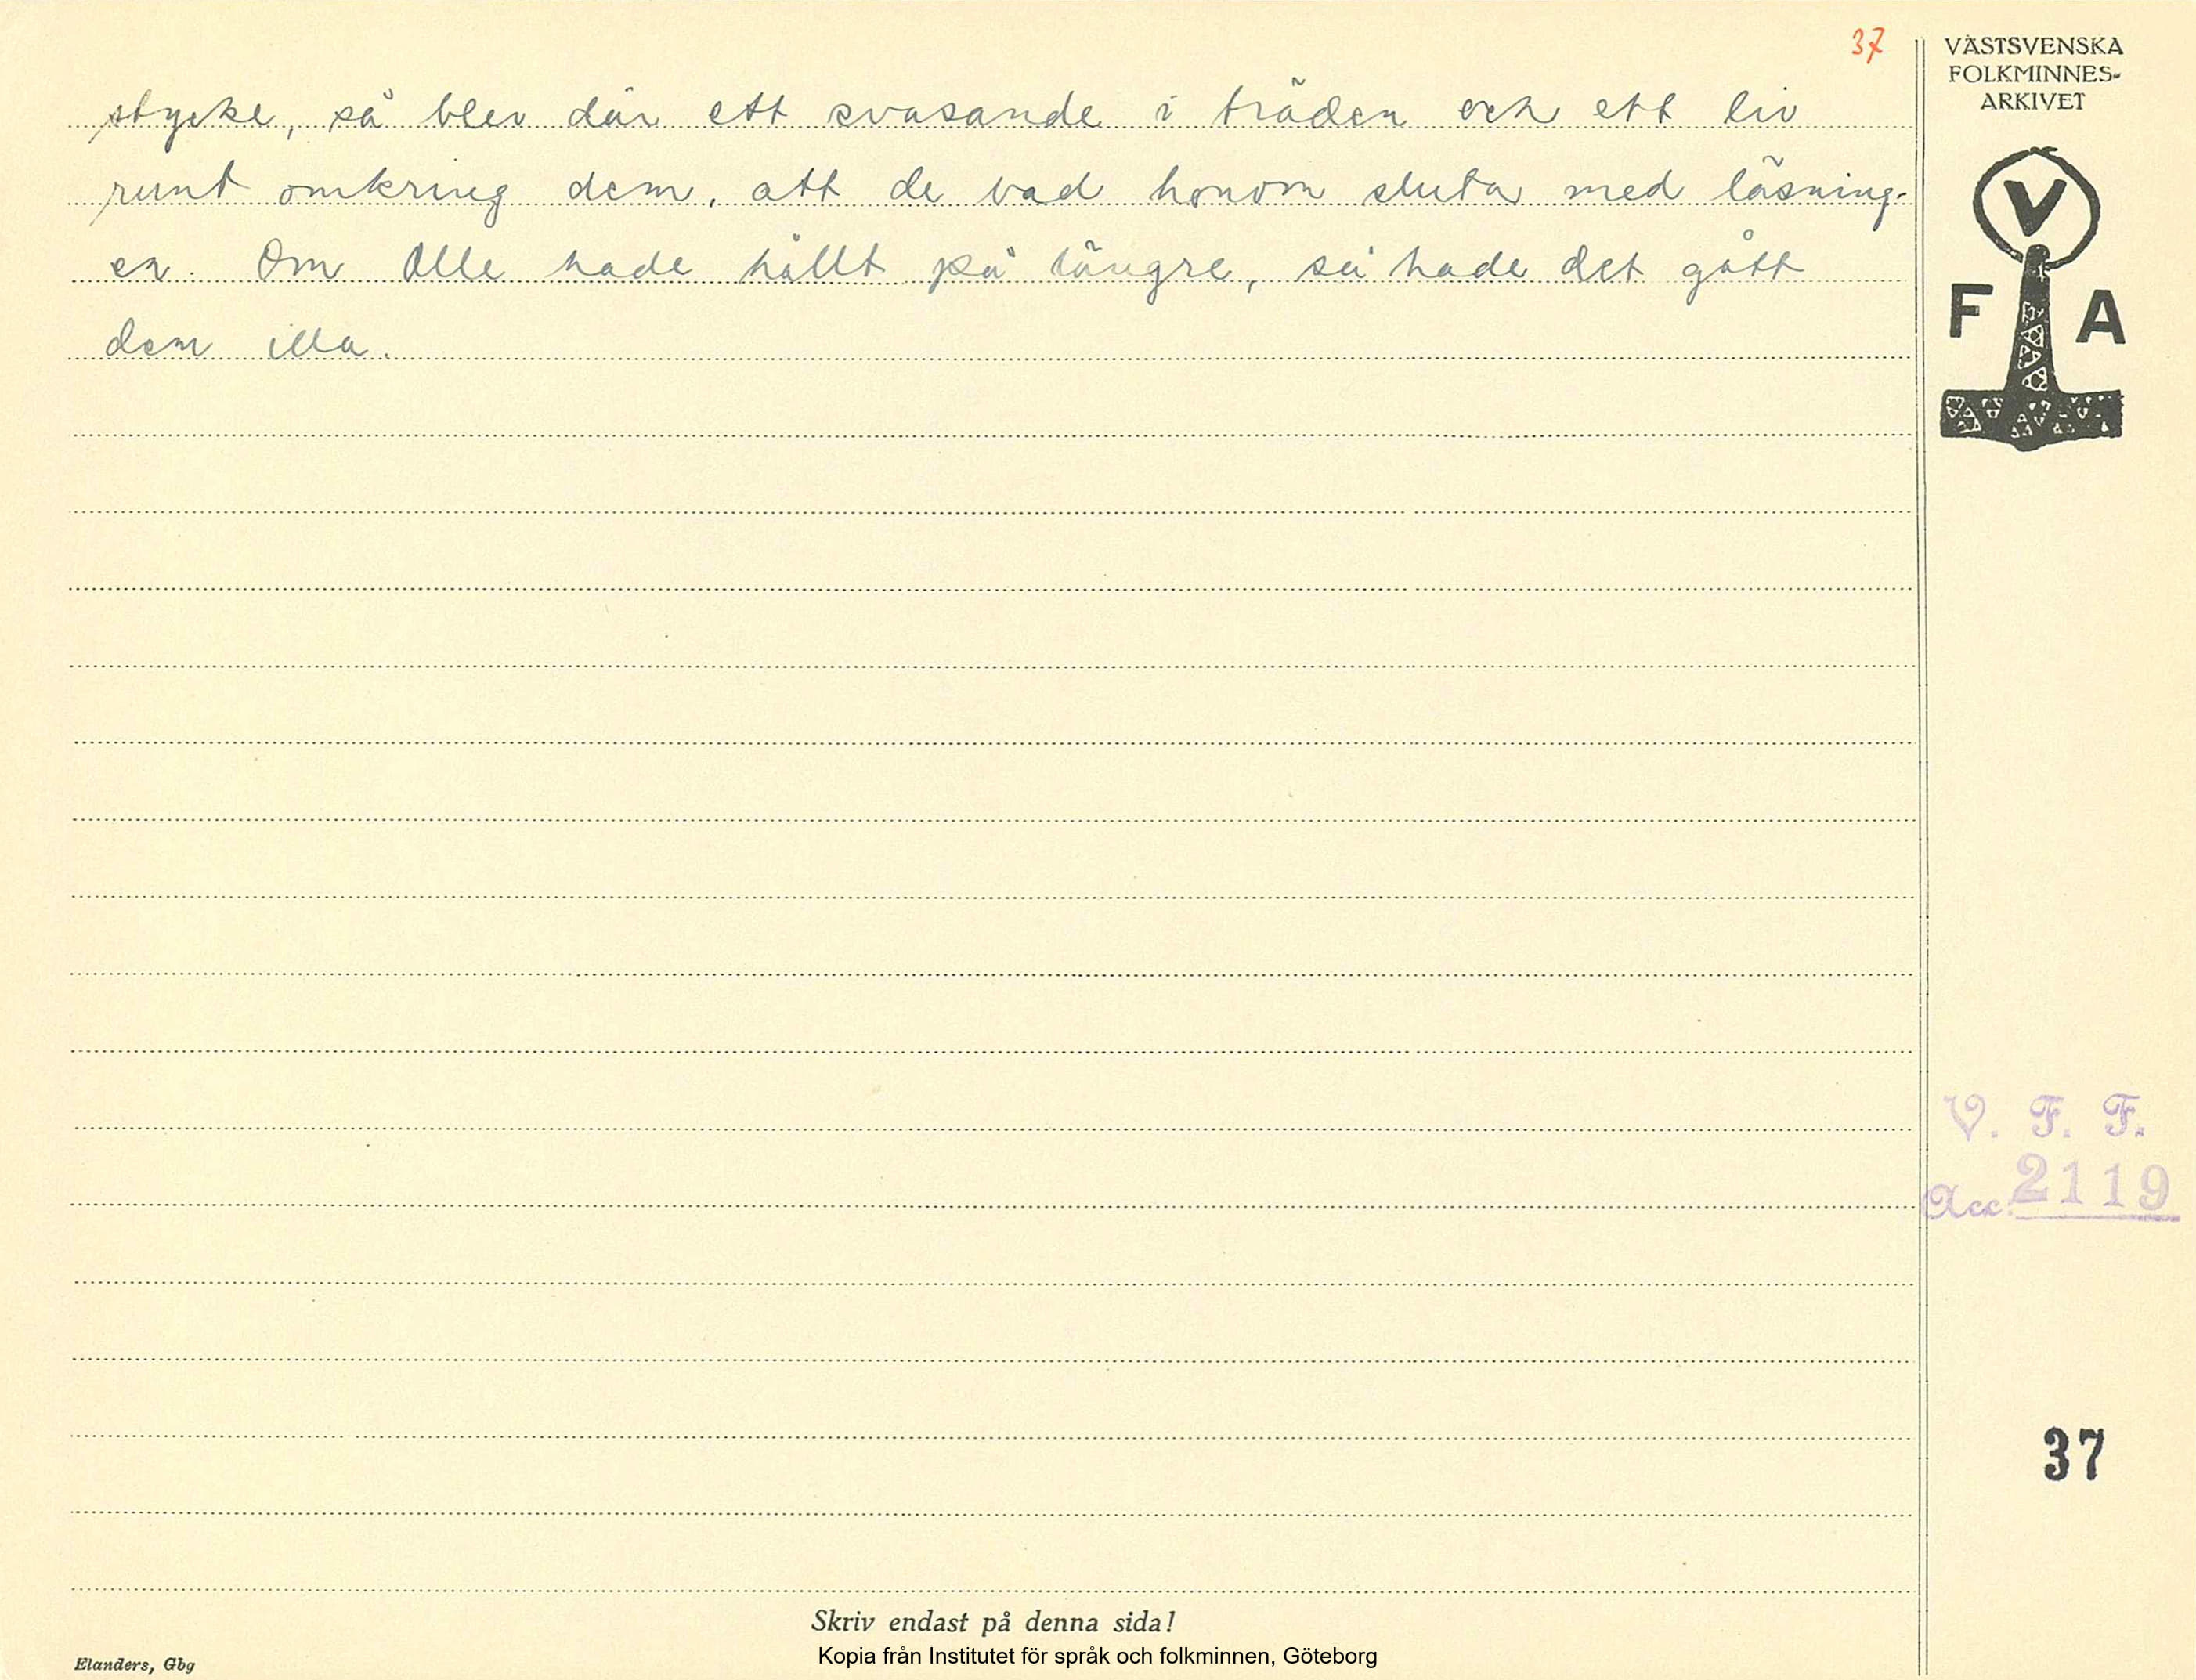 37
VÄSTSVENSKA
FOLKMINNES-
ARKIVET
stycke, så blev där ett svasande i träden och ett liv
runt omkring dem, att de bad honom sluta med läsning-
en. Om Olle hade hållt på längre, så hade det gått
dem illa.
V
F A
V. F. F.
Acc. 2119
37
Skriv endast på denna sida!
Kopia från Institutet för språk och folkminnen, Göteborg
Elanders, Gbg